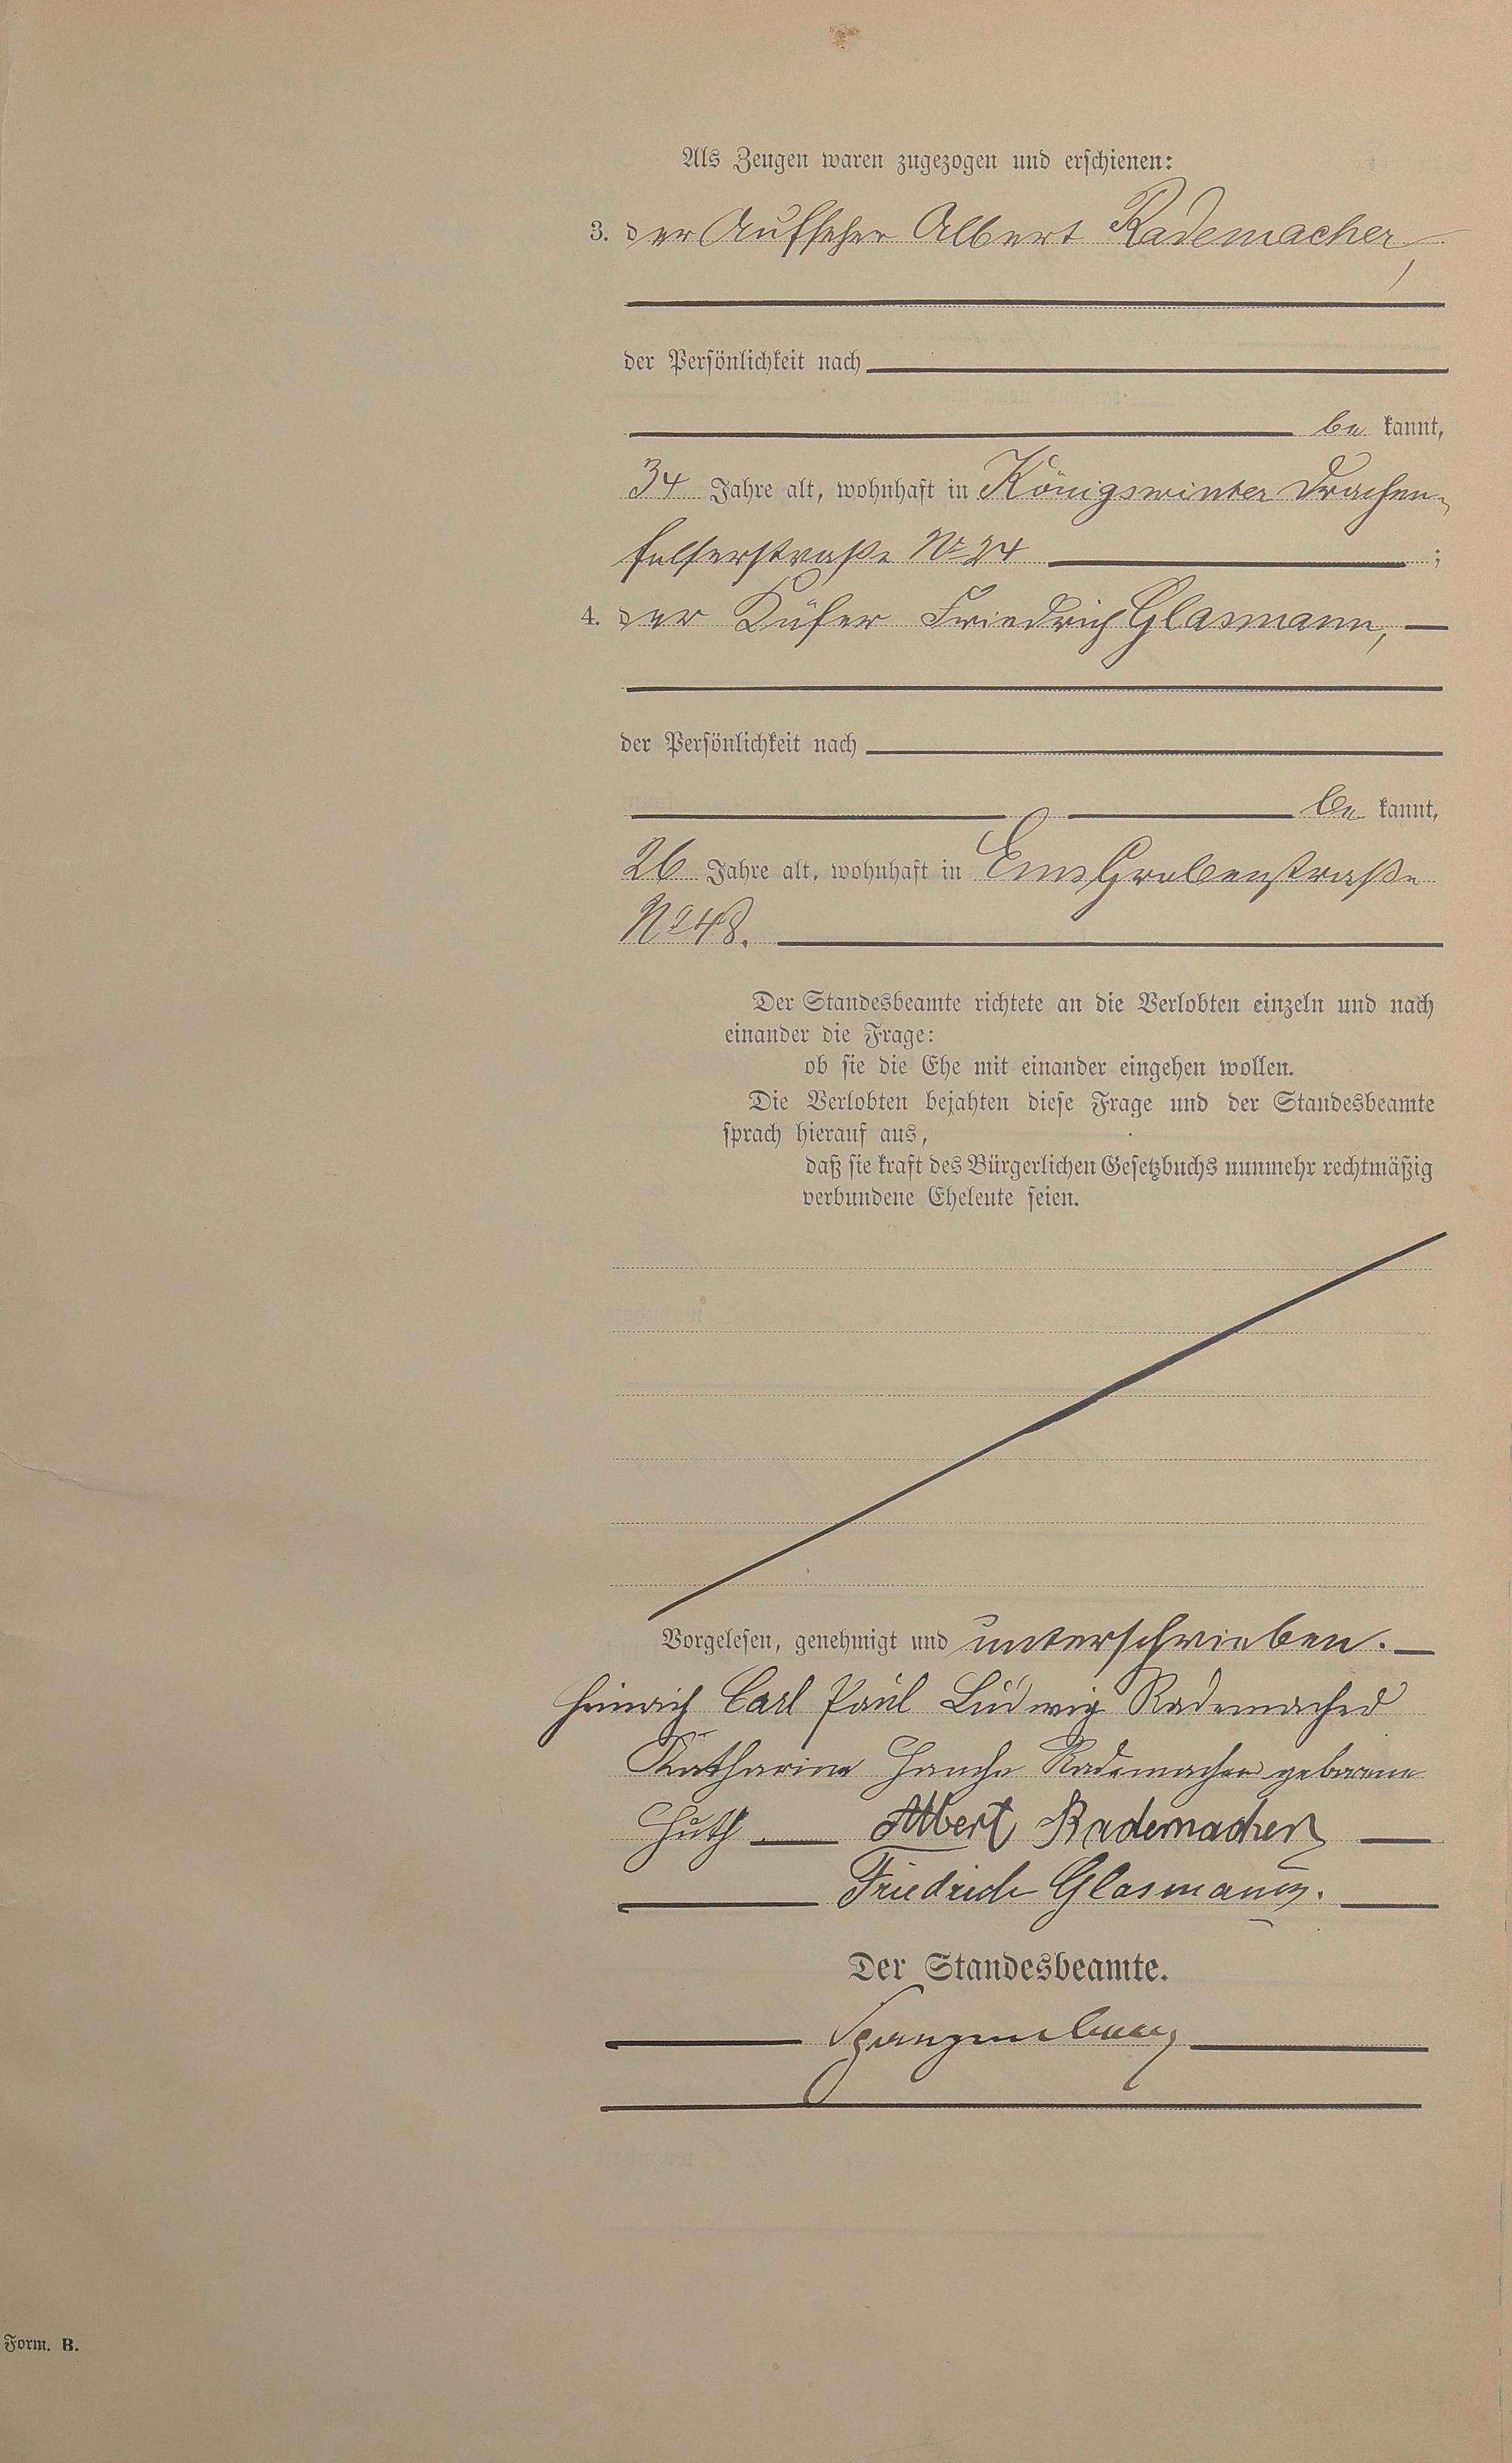 Als Zeugen waren zugezogen und erschienen:
3. der Aufseher Albert Rademacher,
der Persönlichkeit nach
be kannt,
34 Jahre alt, wohnhaft in Königswinter Drachen-
felserstraße No 24 ;
4. der Küfer Friedrich Glasmann,
der Persönlichkeit nach
be kannt,
26 Jahre alt, wohnhaft in Ems Grabenstraße
No 48.
Der Standesbeamte richtete an die Verlobten einzeln und nach
einander die Frage:
ob sie die Ehe mit einander eingehen wollen.
Die Verlobten bejahten diese Frage und der Standesbeamte
sprach hierauf aus,
daß sie kraft des Bürgerlichen Gesetzbuchs nunmehr rechtmäßig
verbundene Eheleute seien.
Vorgelesen, genehmigt und unterschrieben.
Heinrich Carl Paul Ludwig Rademacher
Katharina Rademacher geborene
Huth Albert Rademacher
Friedrich Glasmann.
Der Standesbeamte.
Spangenberg
Form. B.